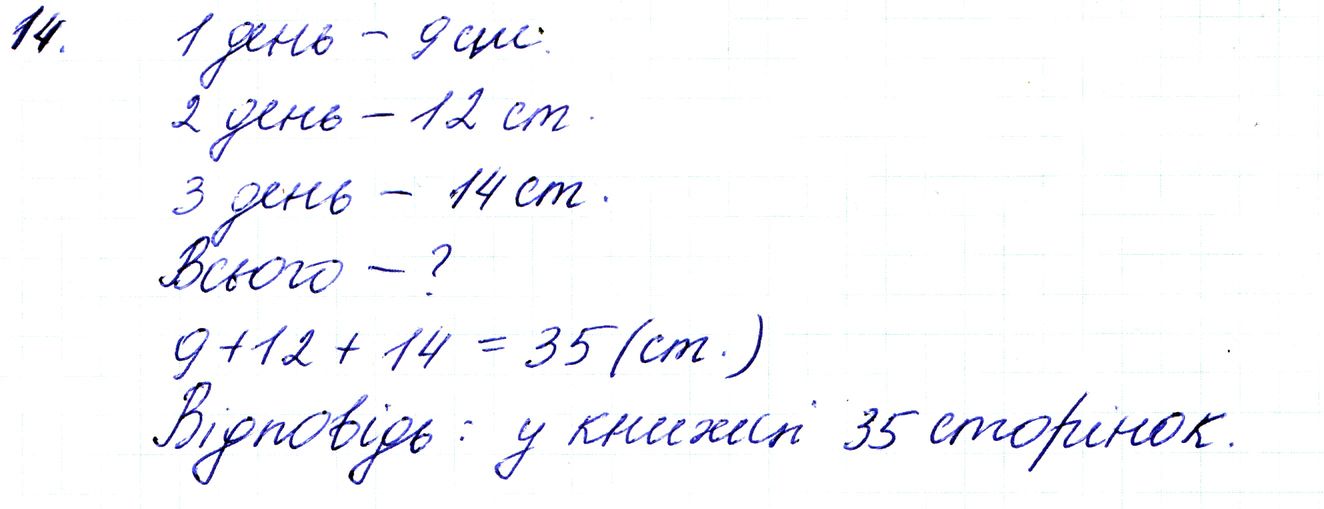 14. 1 день – 9 ст.
2 день – 12 ст.
3 день – 14 ст.
Всього – ?
9 + 12 + 14 = 35 (ст.)
Відповідь: у книжці 35 сторінок.